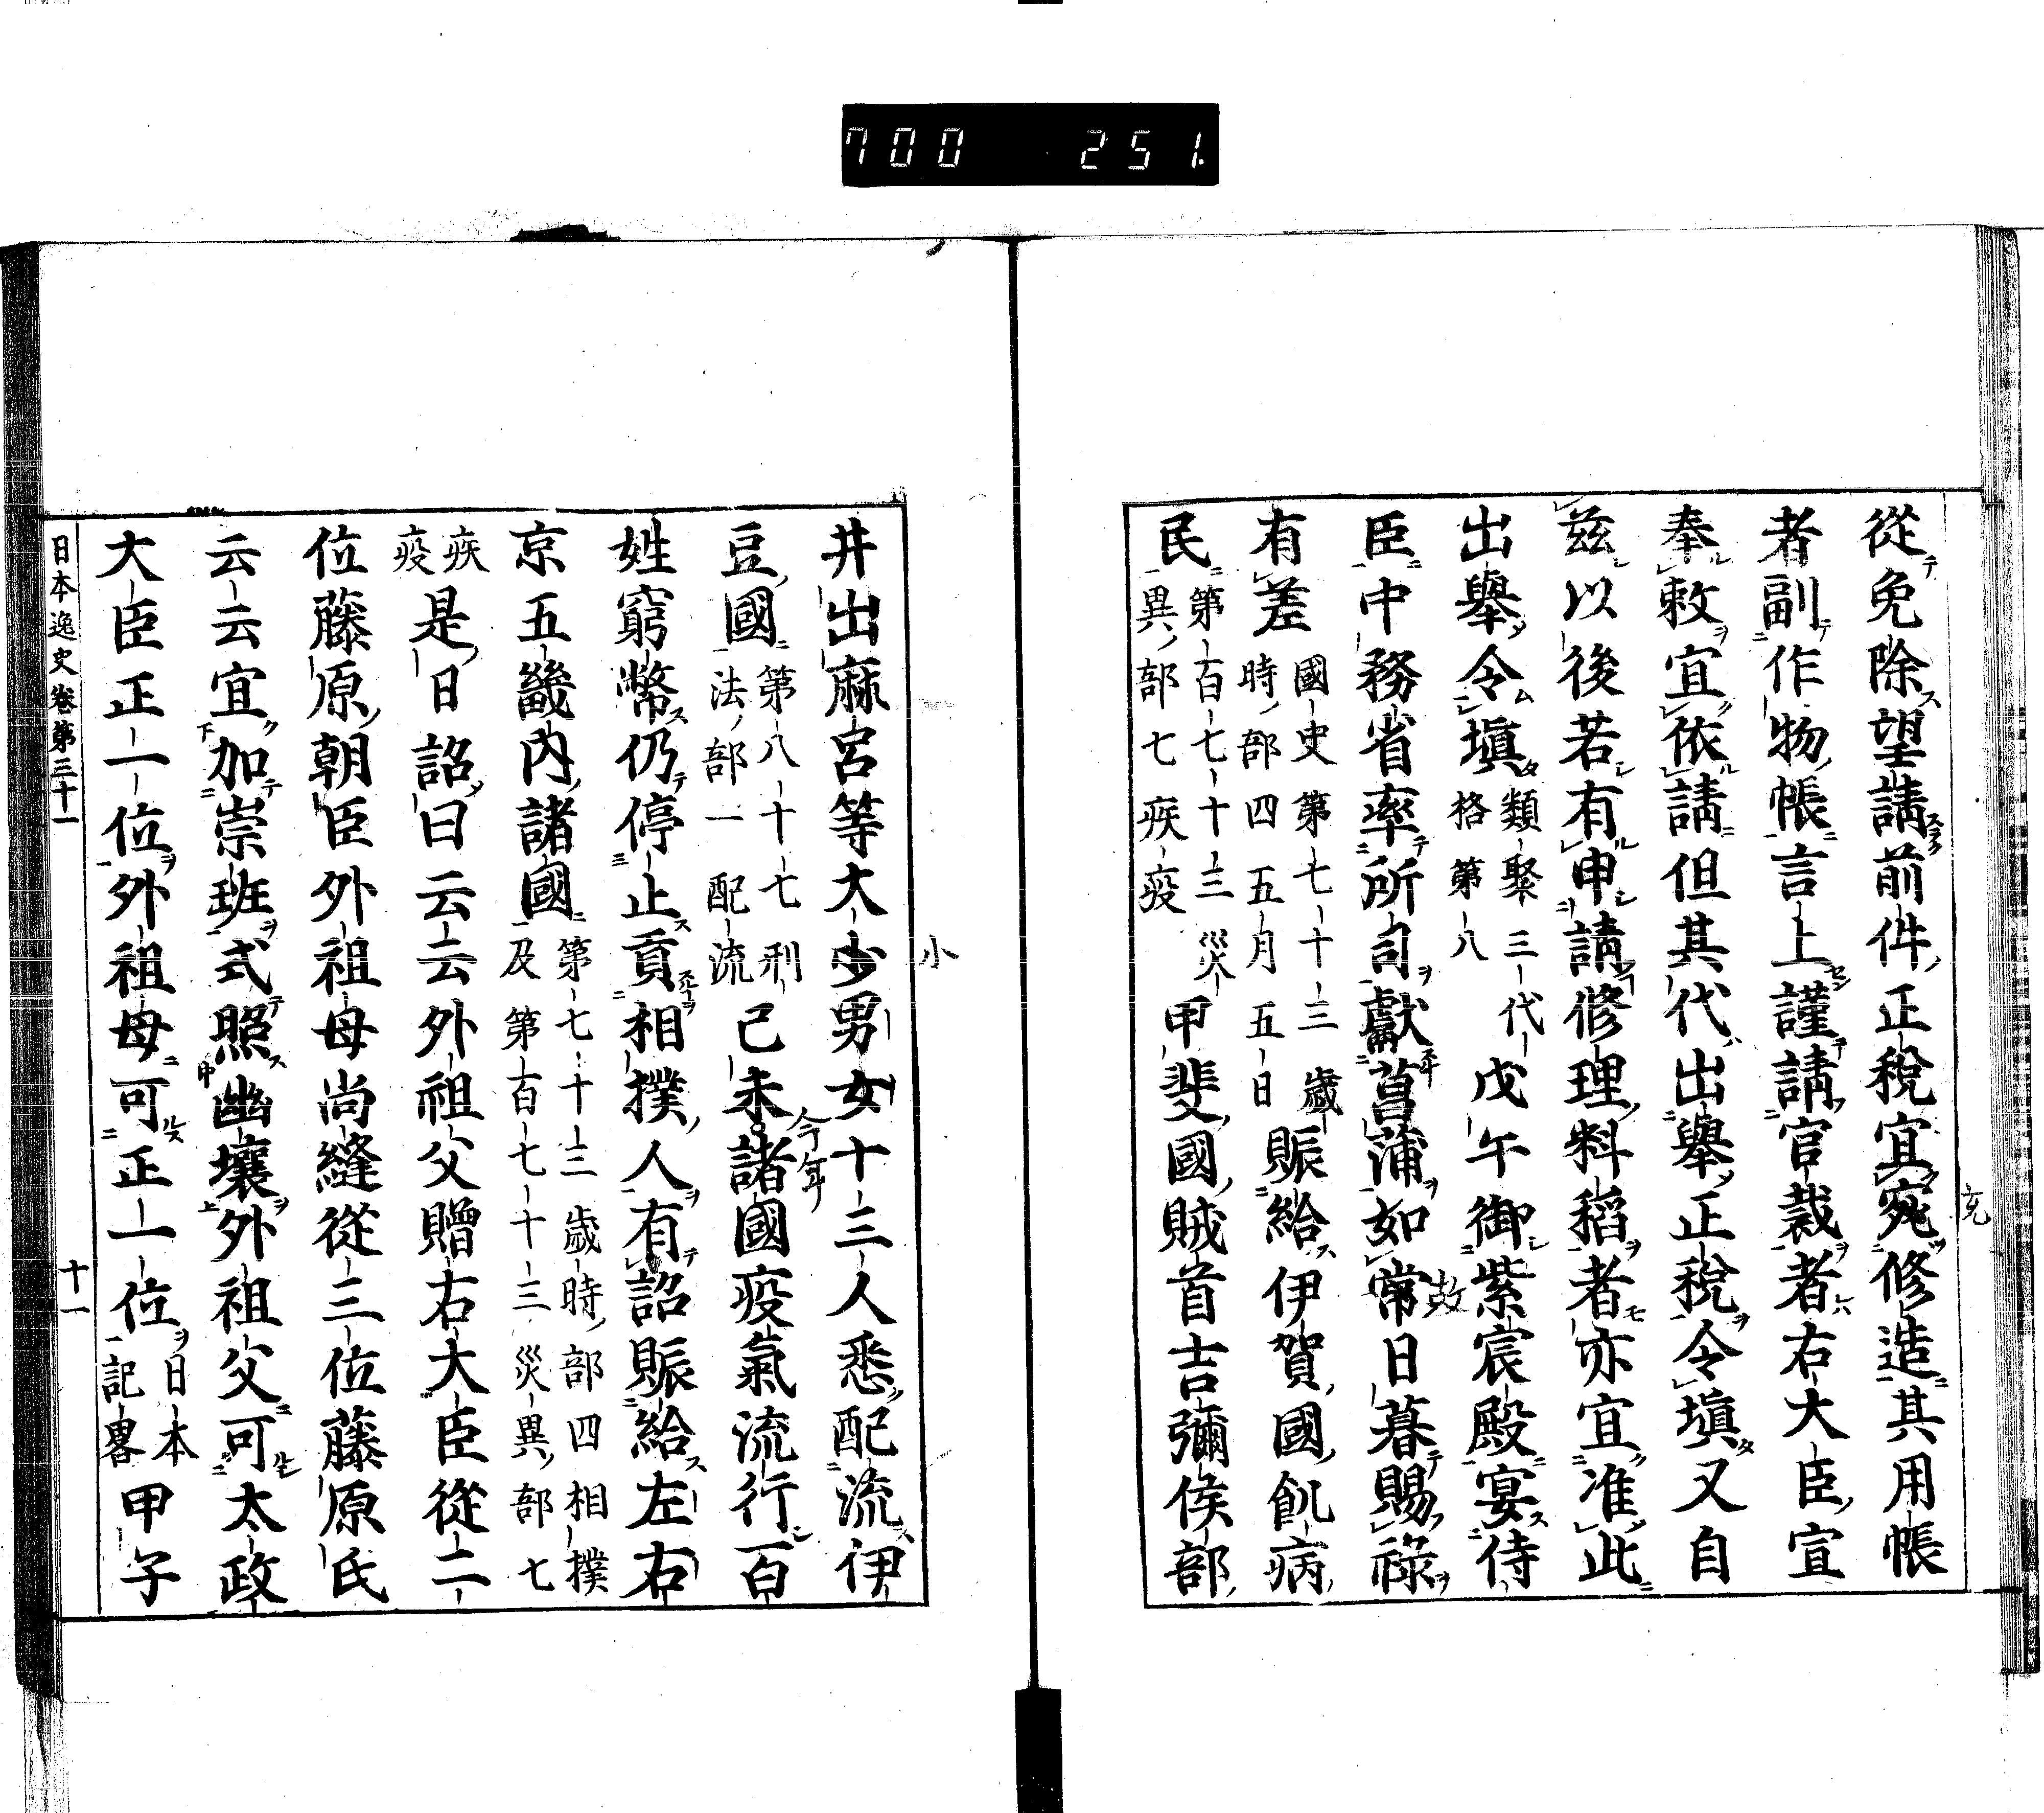 700 251
從免除望請前件正稅宜宛修造其用帳
充
者副作物帳言上謹請官裁者右大臣宣
奉敕宜依請但其代出舉正稅令塡又自
茲以後若有申請修理料稻者亦宜准此
出舉令塡類聚三代格第八戊午御紫宸殿宴侍
臣中務省率所司獻菖蒲如常日暮賜祿
故
有差國史第七十三歲時部四五月五日賑給伊賀國飢病
民第百七十三災異部七疾疫甲斐國賊首吉彌侯部
井出麻呂等大少男女十三人悉配流伊
小
豆國第八十七刑法部一配流己未諸國疫氣流行百
今年
姓窮幣仍停止貢相撲人有詔賑給左右
京五畿內諸國第七十三歲時部四相撲及第百七十三災異部七
疾疫是日詔曰云云外祖父贈右大臣從二
位藤原朝臣外祖母尚縫從三位藤原氏
云云宜加崇班式照幽壤外祖父可太政
大臣正一位外祖母可正一位日本記畧甲子
日本逸史卷第三十一 十一